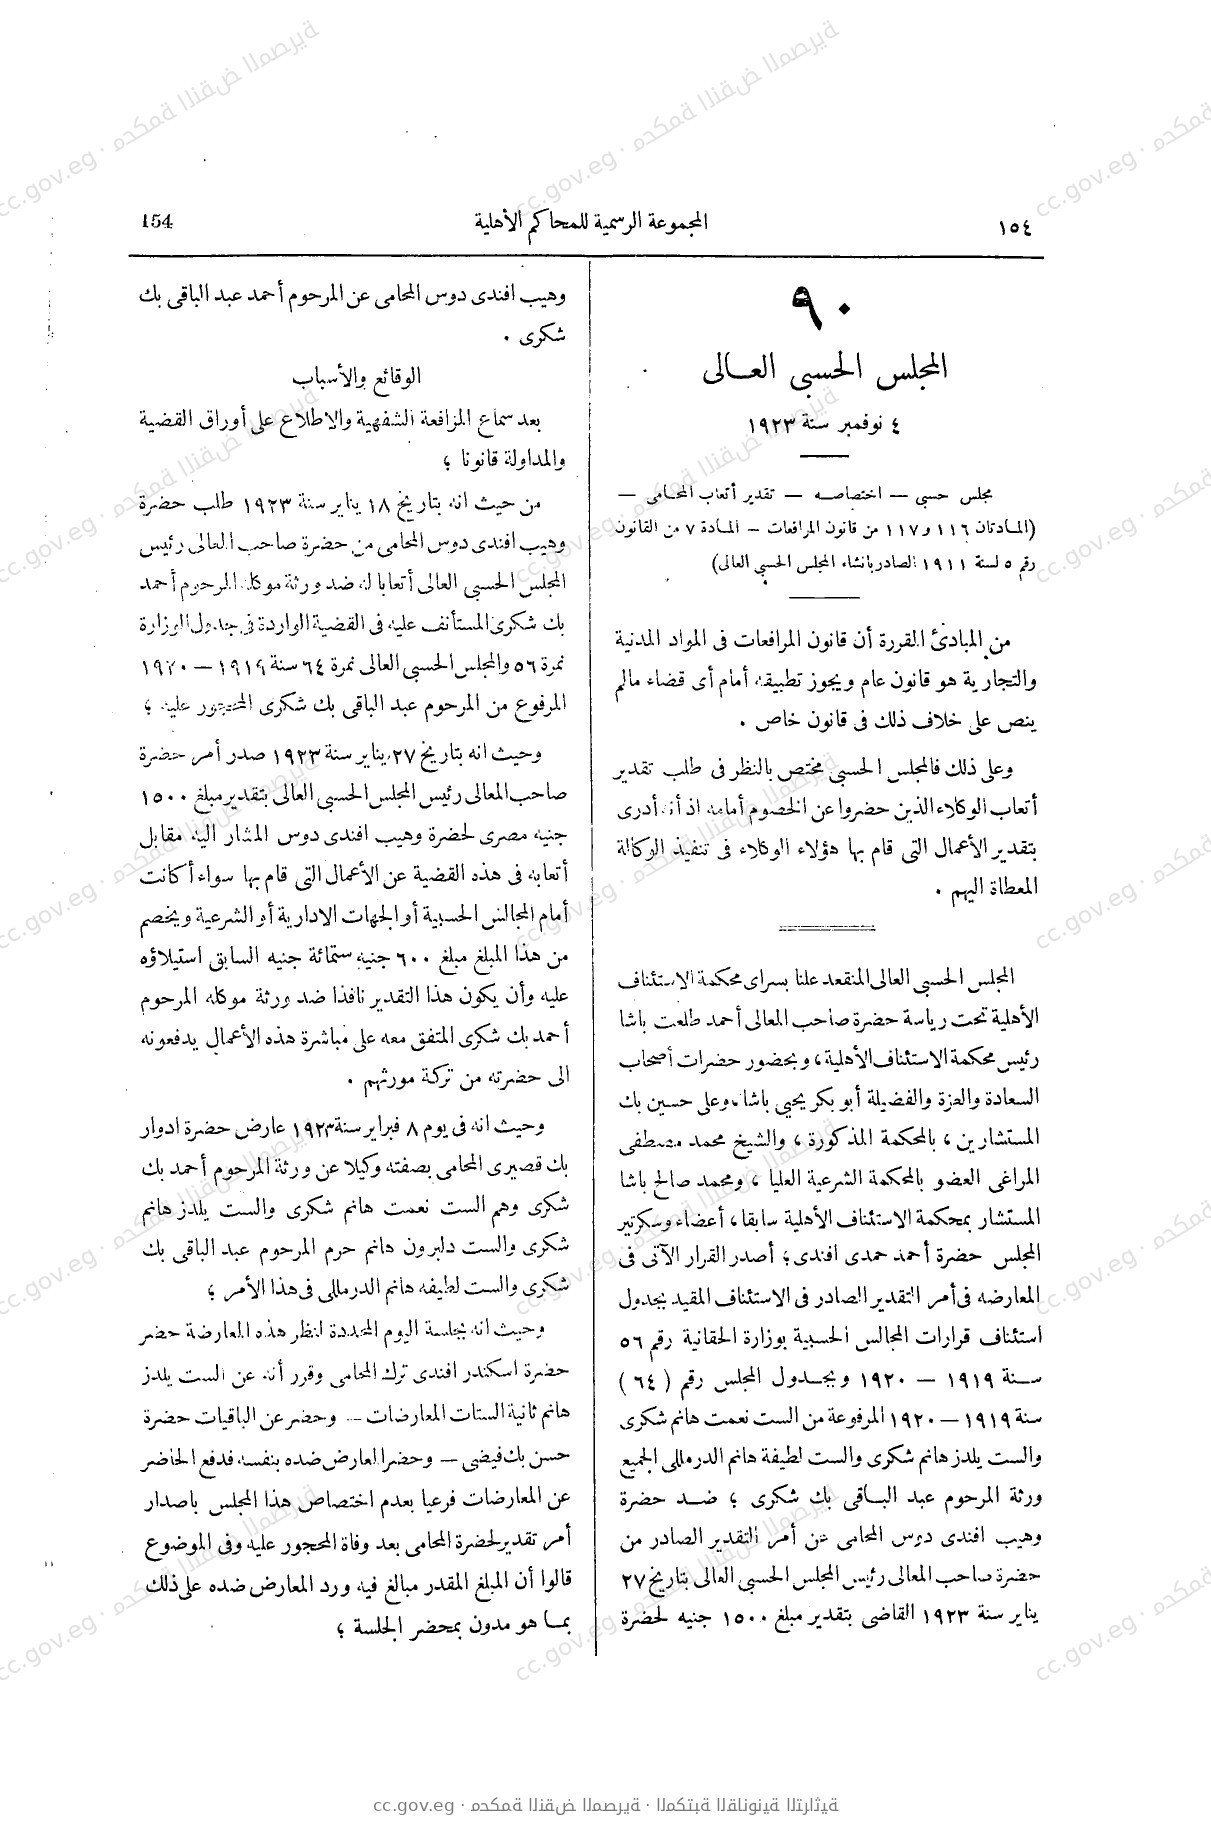 ١٥٤
المجموعة الرسمية للمحاكم الأهلية
154
٩٠
المجلس الحسبى العالى
٤ نوفمبر سنة ١٩٢٣
مجلس حسبى — اختصاصه — تقدير أتعاب المحامى —
(المادتان ١١٦ و ١١٧ من قانون المرافعات — المادة ٧ من القانون
رقم ٥ لسنة ١٩١١ الصادر بانشاء المجلس الحسبى العالى)
من المبادئ المقررة أن قانون المرافعات فى المواد المدنية
والتجارية هو قانون عام ويجوز تطبيقه أمام أى قضاء مالم
ينص على خلاف ذلك فى قانون خاص .
وعلى ذلك فالمجلس الحسبى مختص بالنظر فى طلب تقدير
أتعاب الوكلاء الذين حضروا عن الخصوم أمامه اذ أنه أدرى
بتقدير الأعمال التى قام بها هؤلاء الوكلاء فى تنفيذ الوكالة
المعطاة اليهم .
المجلس الحسبى العالى المنقعد علنا بسراى محكمة الاستئناف
الأهلية تحت رياسة حضرة صاحب المعالى أحمد طلعت باشا
رئيس محكمة الاستئناف الأهلية، وبحضور حضرات أصحاب
السعادة والعزة والفضيلة أبو بكر يحيى باشا، وعلى حسين بك
المستشارين، بالمحكمة المذكورة، والشيخ محمد مصطفى
المراغى العضو بالمحكمة الشرعية العليا، ومحمد صالح باشا
المستشار بمحكمة الاستئناف الأهلية سابقا، أعضاء وسكرتير
المجلس حضرة أحمد حمدى افندى؛ أصدر القرار الآتى فى
المعارضه فى أمر التقدير الصادر فى الاستئناف المقيد بجدول
استئناف قرارات المجالس الحسبية بوزارة الحقانية رقم ٥٦
سنة ١٩١٩ — ١٩٢٠ وبجدول المجلس رقم (٦٤)
سنة ١٩١٩ — ١٩٢٠ المرفوعة من الست نعمت هانم شكرى
والست يلدز هانم شكرى والست لطيفة هانم الدرمللى الجميع
ورثة المرحوم عبد الباقى بك شكرى ؛ ضد حضرة
وهيب افندى دوس المحامى عن أمر التقدير الصادر من
حضرة صاحب المعالى رئيس المجلس الحسبى العالى بتاريخ ٢٧
يناير سنة ١٩٢٣ القاضى بتقدير مبلغ ١٥٠٠ جنيه لحضرة
وهيب افندى دوس المحامى عن المرحوم أحمد عبد الباقى بك
شكرى .
الوقائع والأسباب
بعد سماع المرافعة الشفهية والاطلاع على أوراق القضية
والمداولة قانونا ؛
من حيث انه بتاريخ ١٨ يناير سنة ١٩٢٣ طلب حضرة
وهيب افندى دوس المحامى من حضرة صاحب المعالى رئيس
المجلس الحسبى العالى أتعابا له ضد ورثة موكله المرحوم أحمد
بك شكرى المستأنف عليه فى القضية الواردة فى جدول الوزارة
نمرة ٥٦ والمجلس الحسبى العالى نمرة ٦٤ سنة ١٩١٩ — ١٩٢٠
المرفوع من المرحوم عبد الباقى بك شكرى المحجور عليه ؛
وحيث انه بتاريخ ٢٧ يناير سنة ١٩٢٣ صدر أمر حضرة
صاحب المعالى رئيس المجلس الحسبى العالى بتقدير مبلغ ١٥٠٠
جنيه مصرى لحضرة وهيب افندى دوس المشار اليه مقابل
أتعابه فى هذه القضية عن الأعمال التى قام بها سواء أكانت
أمام المجالس الحسبية أو الجهات الادارية أو الشرعية ويخصم
من هذا المبلغ مبلغ ٦٠٠ جنيه ستمائة جنيه السابق استيلاؤه
عليه وأن يكون هذا التقدير نافذا ضد ورثة موكله المرحوم
أحمد بك شكرى المتفق معه على مباشرة هذه الأعمال يدفعونه
الى حضرته من تركة مورثهم .
وحيث انه فى يوم ٨ فبراير سنة ١٩٢٣ عارض حضرة ادوار
بك قصيرى المحامى بصفته وكيلا عن ورثة المرحوم أحمد بك
شكرى وهم الست نعمت هانم شكرى والست يلدز هانم
شكرى والست دلبرون هانم حرم المرحوم عبد الباقى بك
شكرى والست لطيفه هانم الدرمللى فى هذا الأمر ؛
وحيث انه بجلسة اليوم المحددة لنظر هذه المعارضة حضر
حضرة اسكندر افندى ترك المحامى وقرر أنه عن الست يلدز
هانم ثانية الستات المعارضات — وحضر عن الباقيات حضرة
حسن بك فيضى — وحضر المعارض ضده بنفسه فدفع الحاضر
عن المعارضات فرعيا بعدم اختصاص هذا المجلس باصدار
أمر تقدير لحضرة المحامى بعد وفاة المحجور عليه وفى الموضوع
قالوا أن المبلغ المقدر مبالغ فيه ورد المعارض ضده على ذلك
بما هو مدون بمحضر الجلسة ؛
cc.gov.eg · محكمة النقض المصرية · المكتبة القانونية التراثية